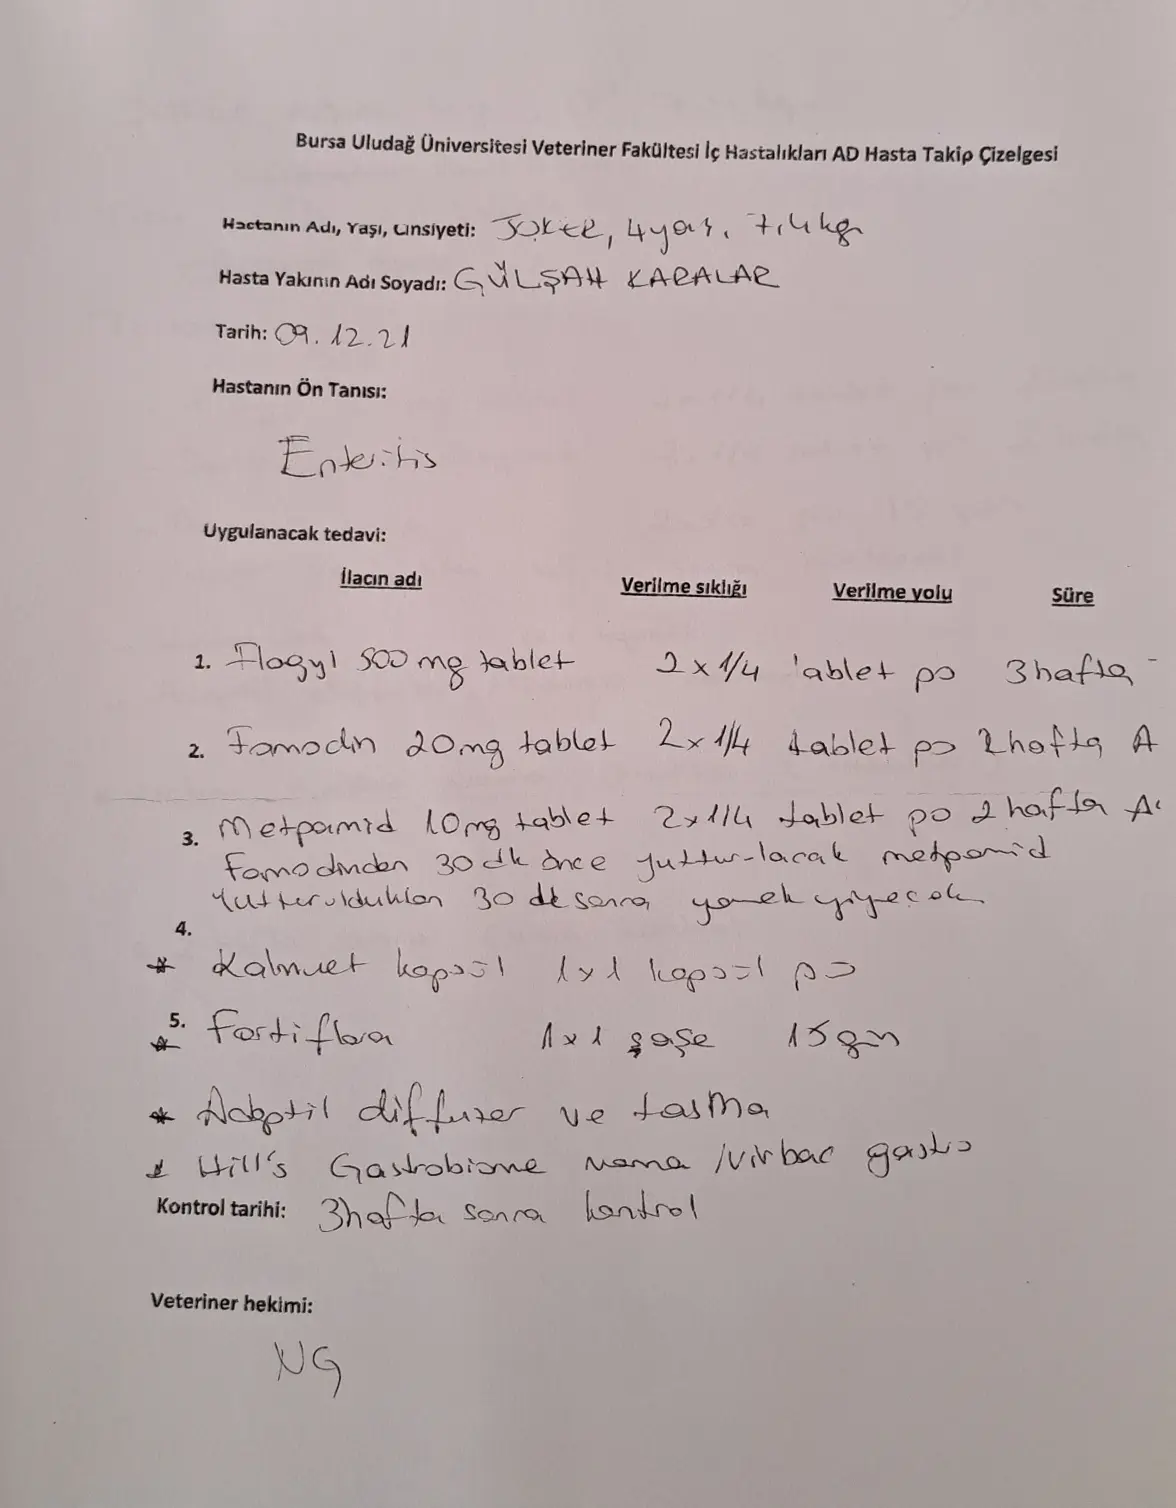 Bursa Uludağ Üniversitesi Veteriner Fakültesi İç Hastalıkları AD Hasta Takip Çizelgesi
Hastanın Adı, Yaşı, Cinsiyeti: JOKER, 4 yaş, 7,4 kg
Hasta Yakının Adı Soyadı: GÜLŞAH KARALAR
Tarih: 09.12.21
Hastanın Ön Tanısı:
Enteritis
Uygulanacak tedavi:
İlacın adı Verilme sıklığı Verilme yolu Süre
1. Flagyl 500 mg tablet 2x1/4 tablet po 3 hafta
2. Famodin 20mg tablet 2x1/4 tablet po 2 hafta A
3. Metpamid 10mg tablet 2x1/4 tablet po 2 hafta
Famodinden 30 dk önce yutturulacak metpamid
Yutturulduktan 30 dk sonra yemek yiyecek
4.
* kapsül 1x1 kapsül po
5. Fortiflora 1x1 şaşe 15gün
* Adaptil diffuzer ve tasma
* Hill's Gastrobiome mama /virbac gastro
Kontrol tarihi: 3hafta sonra kontrol
Veteriner hekimi:
NG